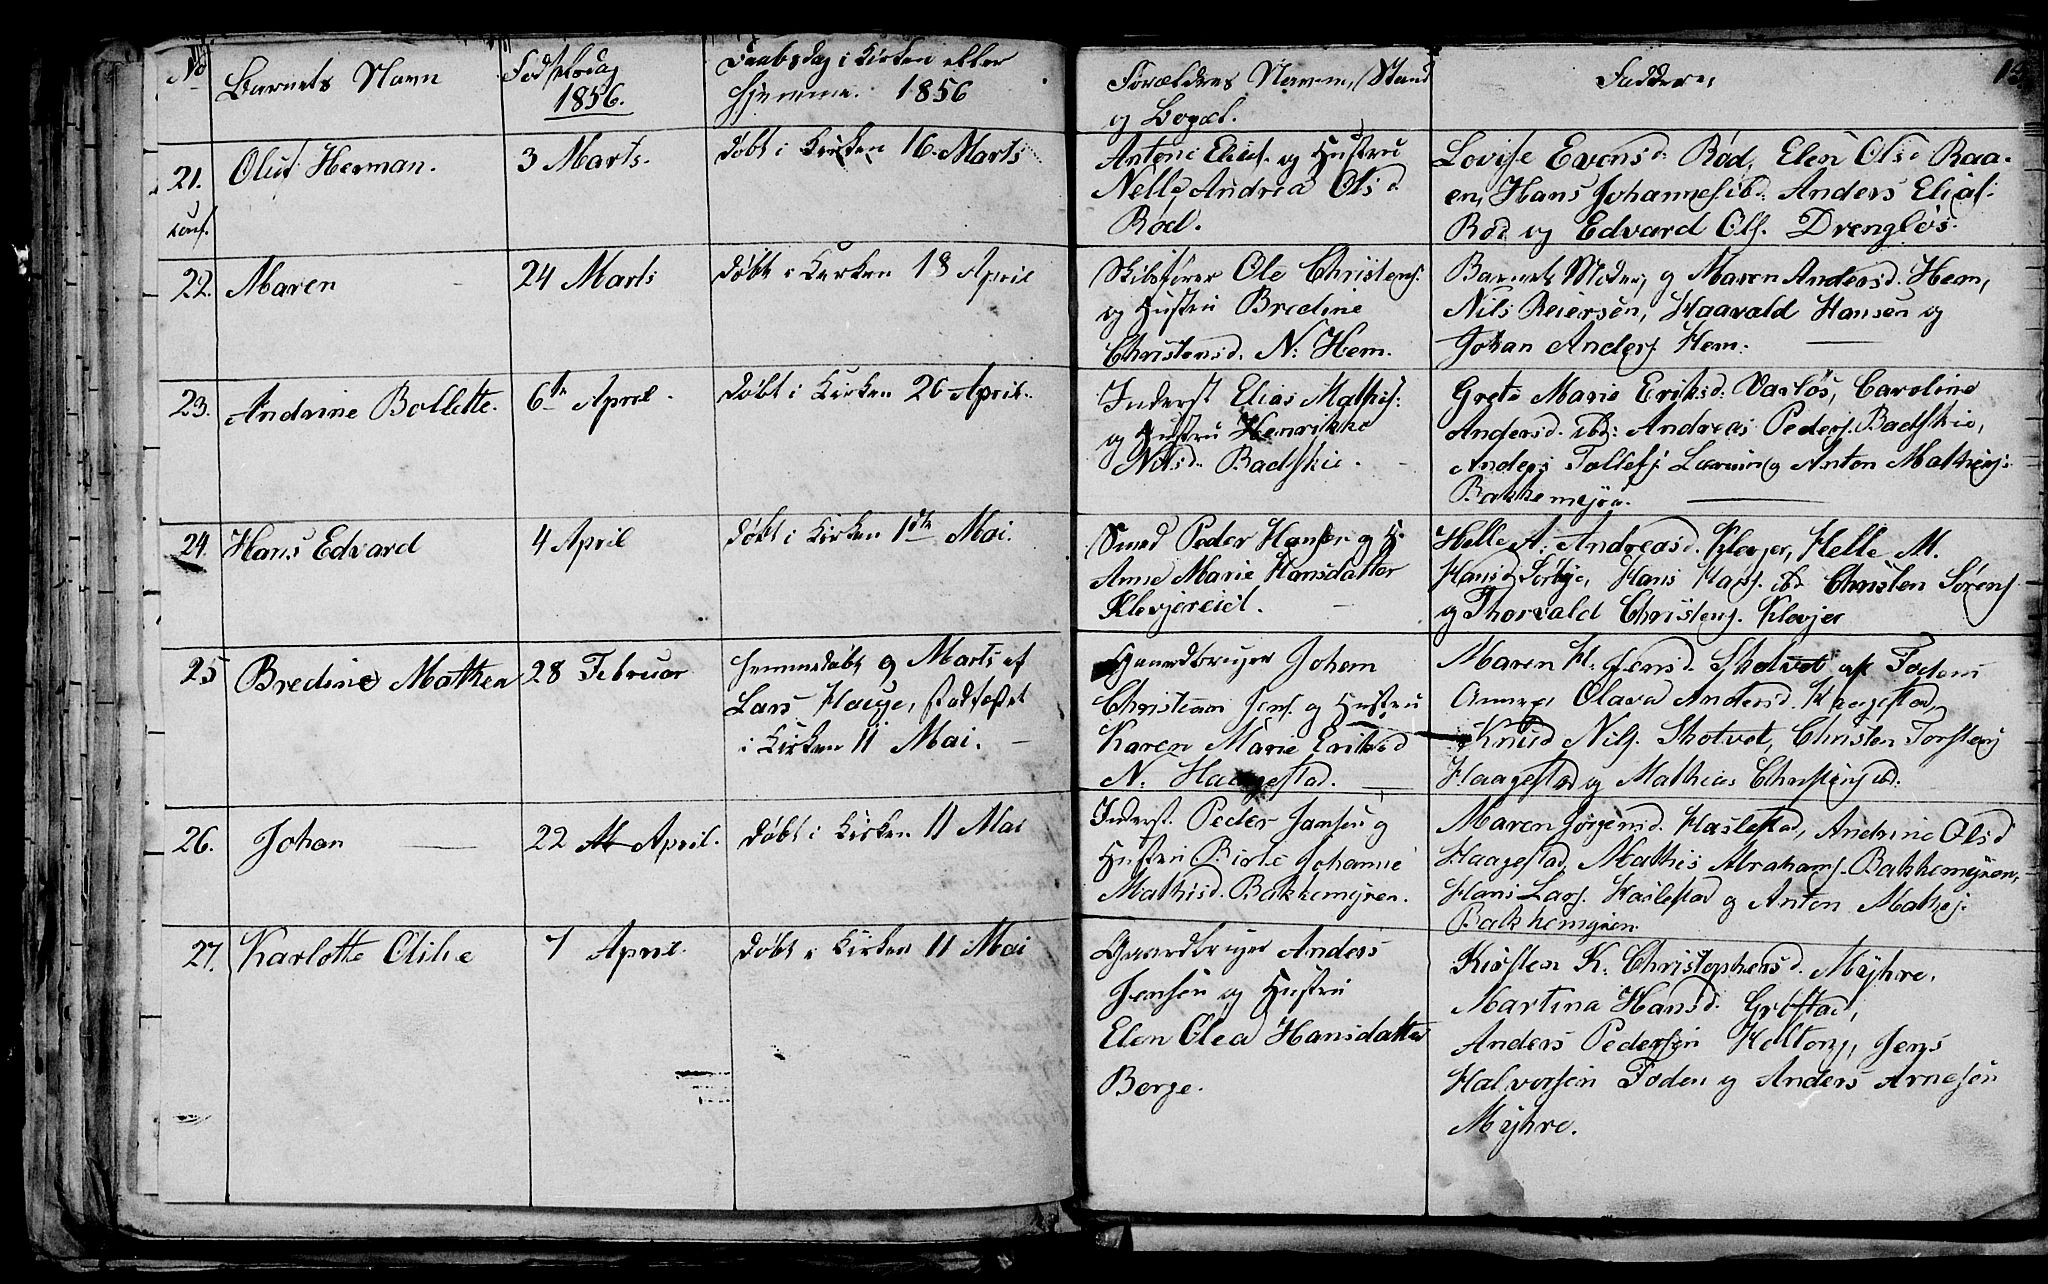 No
Barnets Navn
Fødselsdag
1856.
Daabsdag i Kirken eller
Hjemme. 1856
Forældres Navn, Stand
og Bopæl.
Faddere,
21. Olus Herman. 3 Marts. døbt i Kirken 16. Marts
Antoni Elias. og Hustru
Nelle Andrea Olsd
Rød.
Lovise Evensd. Rød, Elen Olsd Raa-
en, Hans Johannes. ibd: Anders Elias.
Rød og Edvard Ols. Drengløs.
22. Maren 24 Marts døbt i Kirken 13 April
Skibsfører Ole Christens.
og Hustru Bredine
Christensd. N: Hem.
Barnets Moder, og Maren Andersd. Hem,
Nils Reiersen, Haavald Hansen og
Johan Anders. Hem.
23. Andrine Bollette. 6te April. døbt i Kirken 26 April.
Inderst Elias Mathis.
og Hustru Henrikke
Nilsd. Badskie.
Grete Marie Eriksd. Varløs, Caroline
Andersd. ibd: Andreas Peders. Badskie,
Anders Tollefs. og Anton Mathis.
Bakkemyra.
24. Hans Edvard 4 April døbt i Kirken 1ste Mai.
Smed Peder Hansen og H.
Anne Marie Hansdatter
Klevjereid.
Helle A. Andreasd. Klevjer, Helle M.
Hansd. Torbye, Hans Hans. ibd Christen Sørens.
og Thorvald Christens. Klevjer
25 Bredine Mathea 28 Februar hjemmedøbt 9 Marts af
Lars Hauge, stadfæstet
i Kirken 11 Mai.
Gaardbruger Johan
Christian Jens. og Hustru
Karen Marie Eriksd
N. Haagestad.
Maren H. Jensd. Skotvet af Fodem
Olava Andersd. Haagestad,
Knud Nils. Skotvet, Christen Torstens.
Haagestad og Mathias Christens. ibd.
26. Johan 22 April. døbt i Kirken 11 Mai
Inderst. Peder Jansen og
Hustru Birte Johanne
Mathisd. Bakkemyren.
Maren Jørgensd. Haslestad, Andrine Olsd
Haagestad, Mathis Abrahams. Bakkemyren,
Hans Lars. Haslestad og Anton Mathis.
Bakkemyren.
27. Karlotte Olilie 7 April. døbt i Kirken 11 Mai
Gaardbruger Anders
Jensen og Hustru
Elen Olea Hansdatter
Berge.
Kirsten K. Christophersd. Myhre,
Martina Hansd. Grøstad,
Anders Pedersen Holtong, Jens
Halvorsen Foden og Anders Arnesen
Myhre.